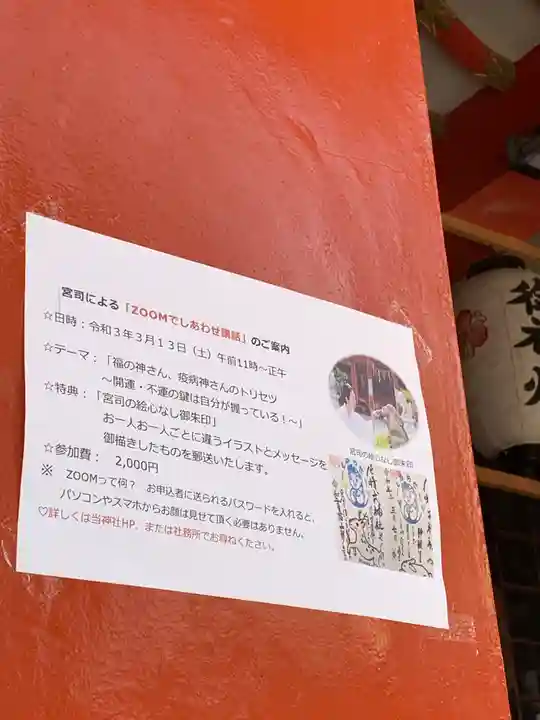 宮司による「ZOOMでしあわせ講話」のご案内
☆日時：令和３年３月１３日（土）午前11時～正午
☆テーマ：「福の神さん、疫病神さんのトリセツ
～開運・不運の鍵は自分が握っている！～」
☆特典：「宮司の絵心なし御朱印」
お一人お一人ごとに違うイラストとメッセージを
御描きしたものを郵送いたします。
☆参加費： 2,000円
※ ZOOMって何？ お申込者に送られるパスワードを入れると、
パソコンやスマホからお顔は見せて頂く必要はありません、
♡詳しくは当神社HP、または社務所でお尋ねください。
宮司の絵心なし御朱印